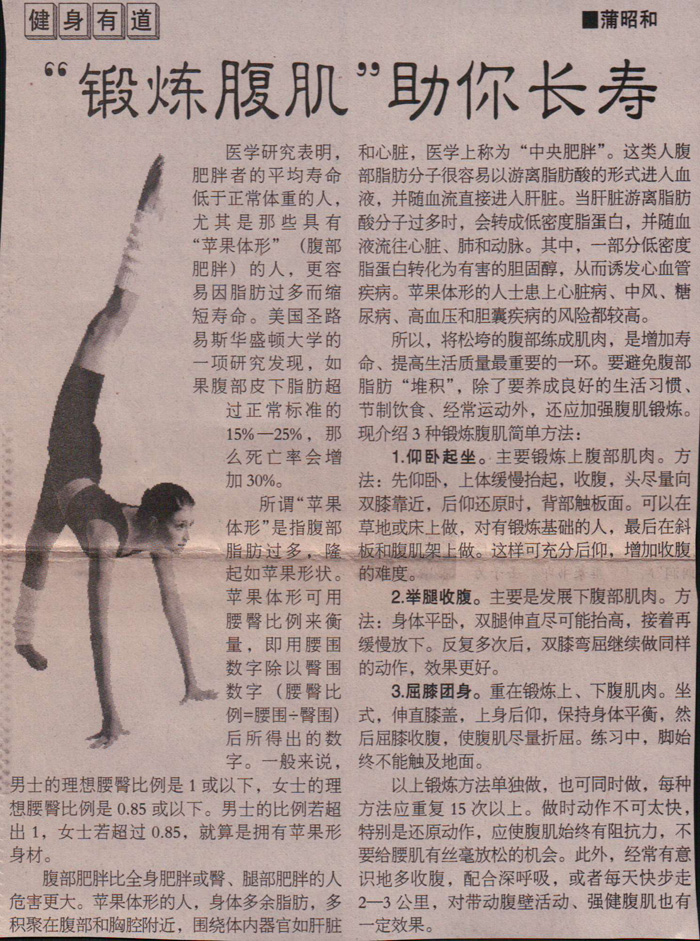 健身有道
■蒲昭和
“锻炼腹肌”助你长寿
医学研究表明，
肥胖者的平均寿命
低于正常体重的人，
尤其是那些具有
“苹果体形”（腹部
肥胖）的人，更容
易因脂肪过多而缩
短寿命。美国圣路
易斯华盛顿大学的
一项研究发现，如
果腹部皮下脂肪超
过正常标准的
15%—25%，那
么死亡率会增
加30%。
所谓“苹果
体形”是指腹部
脂肪过多，隆
起如苹果形状。
苹果体形可用
腰臀比例来衡
量，即用腰围
数字除以臀围
数字（腰臀比
例=腰围÷臀围）
后所得出的数
字。一般来说，
男士的理想腰臀比例是1或以下，女士的理
想腰臀比例是0.85或以下。男士的比例若超
出1，女士若超过0.85，就算是拥有苹果形
身材。
腹部肥胖比全身肥胖或臀、腿部肥胖的人
危害更大。苹果体形的人，身体多余脂肪，多
积聚在腹部和胸腔附近，围绕体内器官如肝脏
和心脏，医学上称为“中央肥胖”。这类人腹
部脂肪分子很容易以游离脂肪酸的形式进入血
液，并随血流直接进入肝脏。当肝脏游离脂肪
酸分子过多时，会转成低密度脂蛋白，并随血
液流往心脏、肺和动脉。其中，一部分低密度
脂蛋白转化为有害的胆固醇，从而诱发心血管
疾病。苹果体形的人士患上心脏病、中风、糖
尿病、高血压和胆囊疾病的风险都较高。
所以，将松垮的腹部练成肌肉，是增加寿
命、提高生活质量最重要的一环。要避免腹部
脂肪“堆积”，除了要养成良好的生活习惯、
节制饮食、经常运动外，还应加强腹肌锻炼。
现介绍3种锻炼腹肌简单方法：
1.仰卧起坐。主要锻炼上腹部肌肉。方
法：先仰卧，上体缓慢抬起，收腹，头尽量向
双膝靠近，后仰还原时，背部触板面。可以在
草地或床上做，对有锻炼基础的人，最后在斜
板和腹肌架上做。这样可充分后仰，增加收腹
的难度。
2.举腿收腹。主要是发展下腹部肌肉。方
法：身体平卧，双腿伸直尽可能抬高，接着再
缓慢放下。反复多次后，双膝弯屈继续做同样
的动作，效果更好。
3.屈膝团身。重在锻炼上、下腹肌肉。坐
式，伸直膝盖，上身后仰，保持身体平衡，然
后屈膝收腹，使腹肌尽量折屈。练习中，脚始
终不能触及地面。
以上锻炼方法单独做，也可同时做，每种
方法应重复15次以上。做时动作不可太快，
特别是还原动作，应使腹肌始终有阻抗力，不
要给腰肌有丝毫放松的机会。此外，经常有意
识地多收腹，配合深呼吸，或者每天快步走
2—3公里，对带动腹壁活动、强健腹肌也有
一定效果。